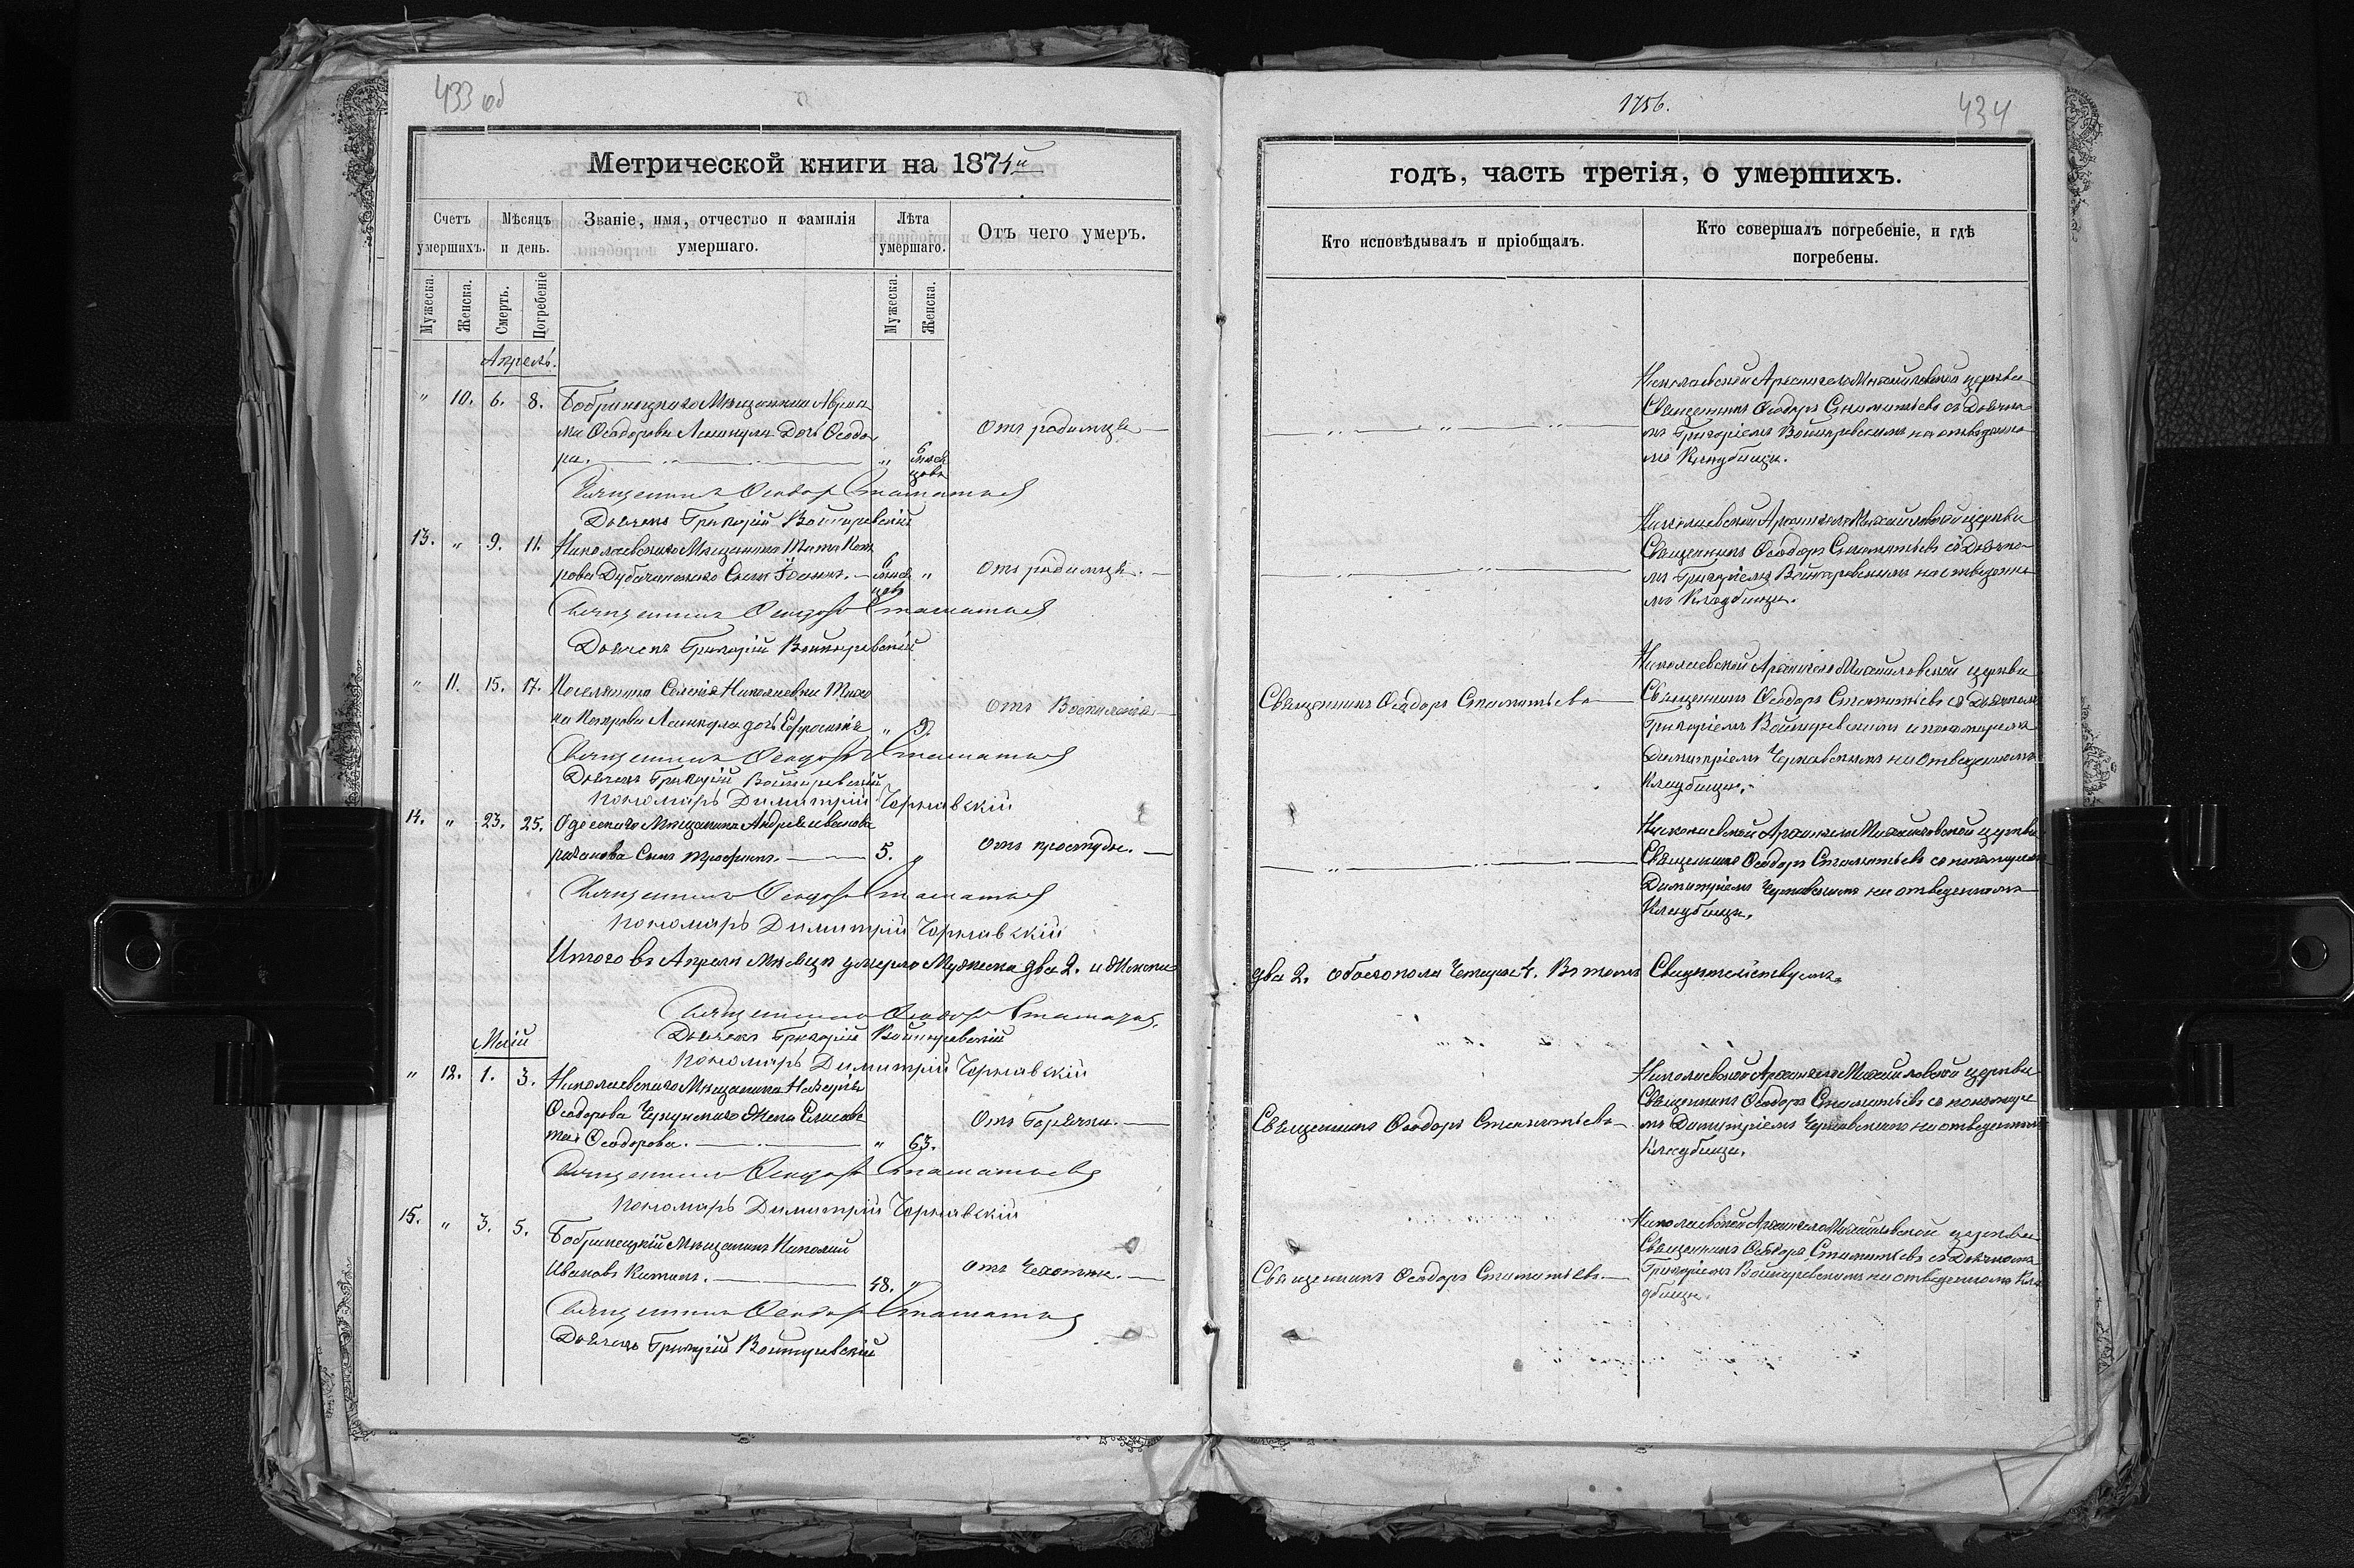 433 об
Метрической книги на 1874й
Счетъ умершихъ.
Мѣсяцъ и день.
Званіе, имя, отчество и фамилія умершаго.
Лѣта умершаго.
Отъ чего умеръ.
Мужеска.
Женска.
Смерть.
Погребеніе
Мужеска.
Женска.
Апрель.
" 10. 6. 8. Бобринецкаго Мѣщанина
Ѳеодорова Дочь Ѳеодо
ра. " 6 мѣся
цовъ
Отъ родимца
Священникъ Ѳеодоръ Стаматьев
Дьячекъ Григорій Войцеревскій
13. " 9. 11. Николаевскаго Мѣщанина
Сынъ Іоаннъ. 6 мѣся "
цов
Отъ родимца.
Священникъ Ѳеодоръ Стаматьев
Дьячекъ Григорій Войцеревскій
" 11. 15. 17. Поселянина Селенія Николаевки
Петрова дочь Ефросинія " 9.
отъ Воспаленія
Священникъ Ѳеодоръ Стаматьев
Дьячекъ Григорій Войцеревскій
Пономарь Димитрій Чернавскій
14. " 23. 25. Одесскаго Мѣщанина Андрея Иванова
Сынъ Трофимъ. 5. "
отъ простуды.
Священникъ Ѳеодоръ Стаматьев
Пономарь Димитрій Чернавскій
Итого въ Апрелѣ Мѣсяцѣ умерло Мужеска два 2. и Женска
Священникъ Ѳеодоръ Стаматьев
Дьячекъ Григорій Войцеревскій
Пономарь Димитрій Чернавскій
Маій
" 12. 1. 3. Николаевскаго Мѣщанина
Ѳеодорова Жена Елисаве
та Ѳеодорова. " 63.
Отъ Горячки.
Священникъ Ѳеодоръ Стаматьевъ
Пономарь Димитрій Чернавскій
15. " 3. 5. Бобринецкій Мѣщанинъ Николай
Ивановъ 48. "
отъ Чахотки.
Священникъ Ѳеодоръ Стаматьев
Дьячекъ Григорій Войцеревскій
1756.
434
годъ, часть третія, о умершихъ.
Кто исповѣдывалъ и пріобщалъ.
Кто совершалъ погребеніе, и гдѣ погребены.
Николаевской Архангело Михайловской церкви
Священникъ Ѳеодоръ Стаматьевъ съ Дьячко
мъ Григоріемъ Войцеревскимъ на отведенно
мъ Кладбищи.
Николаевской Архангело Михайловской церкви
Священникъ Ѳеодоръ Стаматьевъ съ Дьячко
мъ Григоріемъ Войцеревскимъ на отведенно
мъ Кладбищи.
Священникъ Ѳеодоръ Стаматьевъ
Николаевской Архангело Михайловской церкви
Священникъ Ѳеодоръ Стаматьевъ съ Дьячкомъ
Григоріемъ Войцеревскимъ и пономаремъ
Димитріемъ Чернавскимъ на отведенномъ
Кладбищи.
Николаевской Архангело Михайловской церкви
Священникъ Ѳеодоръ Стаматьевъ съ пономаремъ
Димитріемъ Чернавскимъ на отведенномъ
Кладбищи.
два 2. обоего пола Четыре 4. Въ томъ Свидетелствуемъ.
Священникъ Ѳеодоръ Стаматьевъ
Николаевской Архангело Михайловской церкви
Священникъ Ѳеодоръ Стаматьевъ съ пономаре
мъ Димитріемъ Чернавскимъ на отведенномъ
Кладбищи.
Священникъ Ѳеодоръ Стаматьевъ.
Николаевской Архангело Михайловской церкви
Священникъ Ѳеодоръ Стаматьевъ съ Дьячкомъ
Григоріемъ Войцеревскимъ на отведенномъ Кла
дбищи.